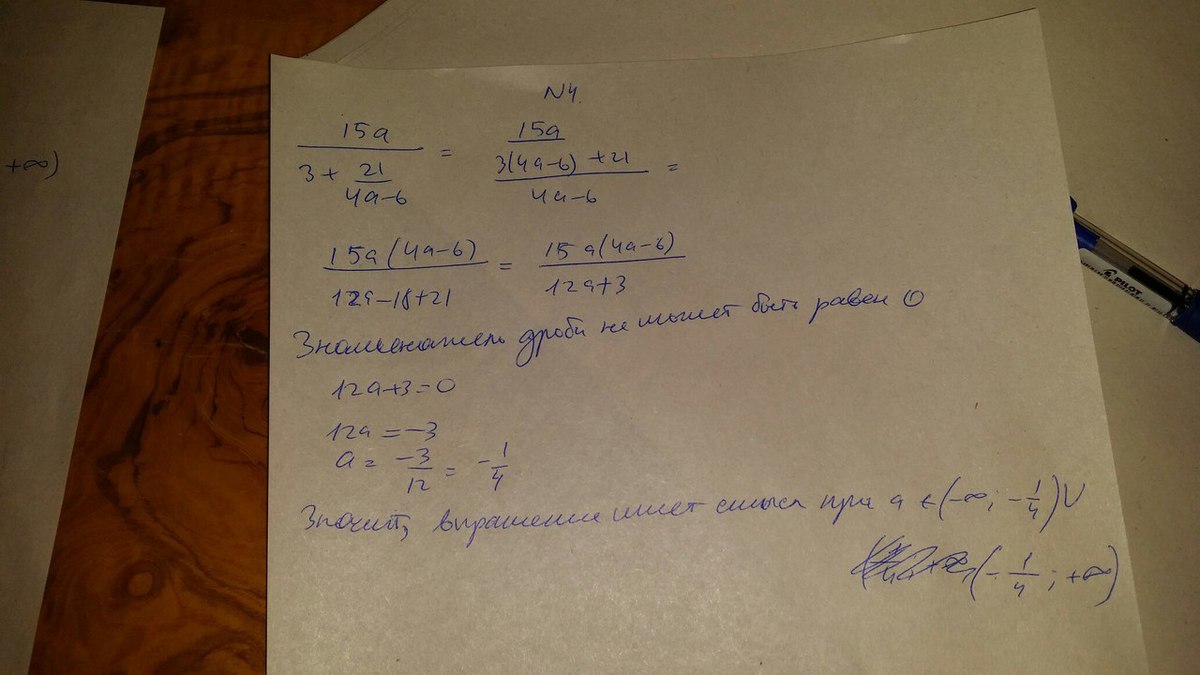 +∞)
N4.
15a / (3 + 21/(4a-6)) = 15a / ((3(4a-6) + 21)/(4a-6)) =
15a(4a-6) / (12a-18+21) = 15a(4a-6) / (12a+3)
Знаменатель дроби не может быть равен 0
12a+3=0
12a = -3
a = -3/12 = -1/4
Значит, выражение имеет смысл при a ∈ (-∞; -1/4) U
(-1/4; +∞)
PILOT